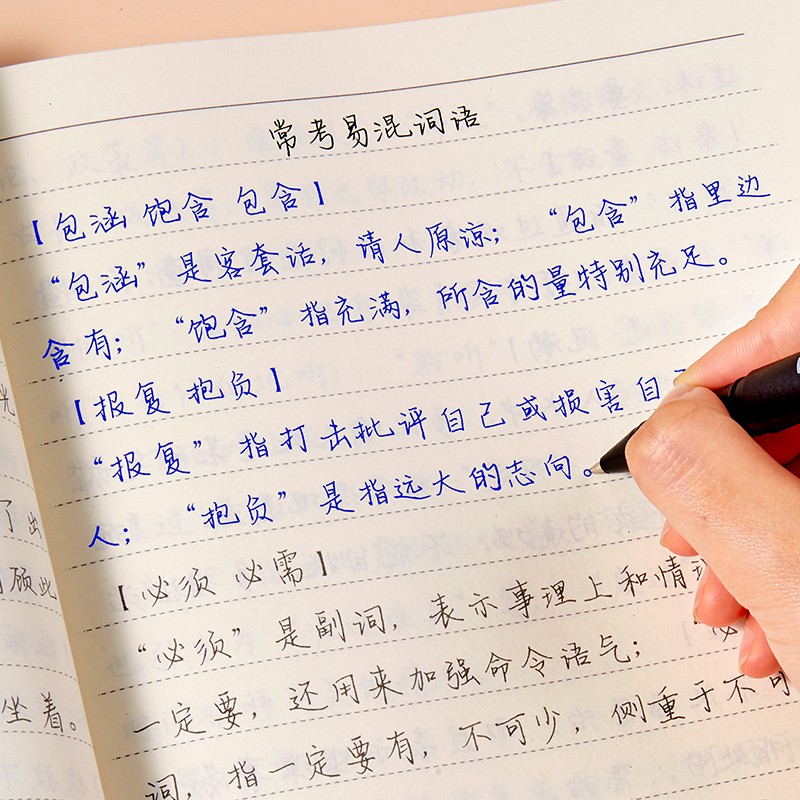 常考易混词语
【包涵 饱含 包含】
“包涵”是客套话，请人原谅；“包含”指里边
含有；“饱含”指充满，所含的量特别充足。
【报复 抱负】
“报复”指打击批评自己或损害自
人；“抱负”是指远大的志向。
【必须 必需】
“必须”是副词，表示事理上和情
一定要，还用来加强命令语气；“必
词，指一定要有，不可少，侧重于不可
了出
顾此
坐着。